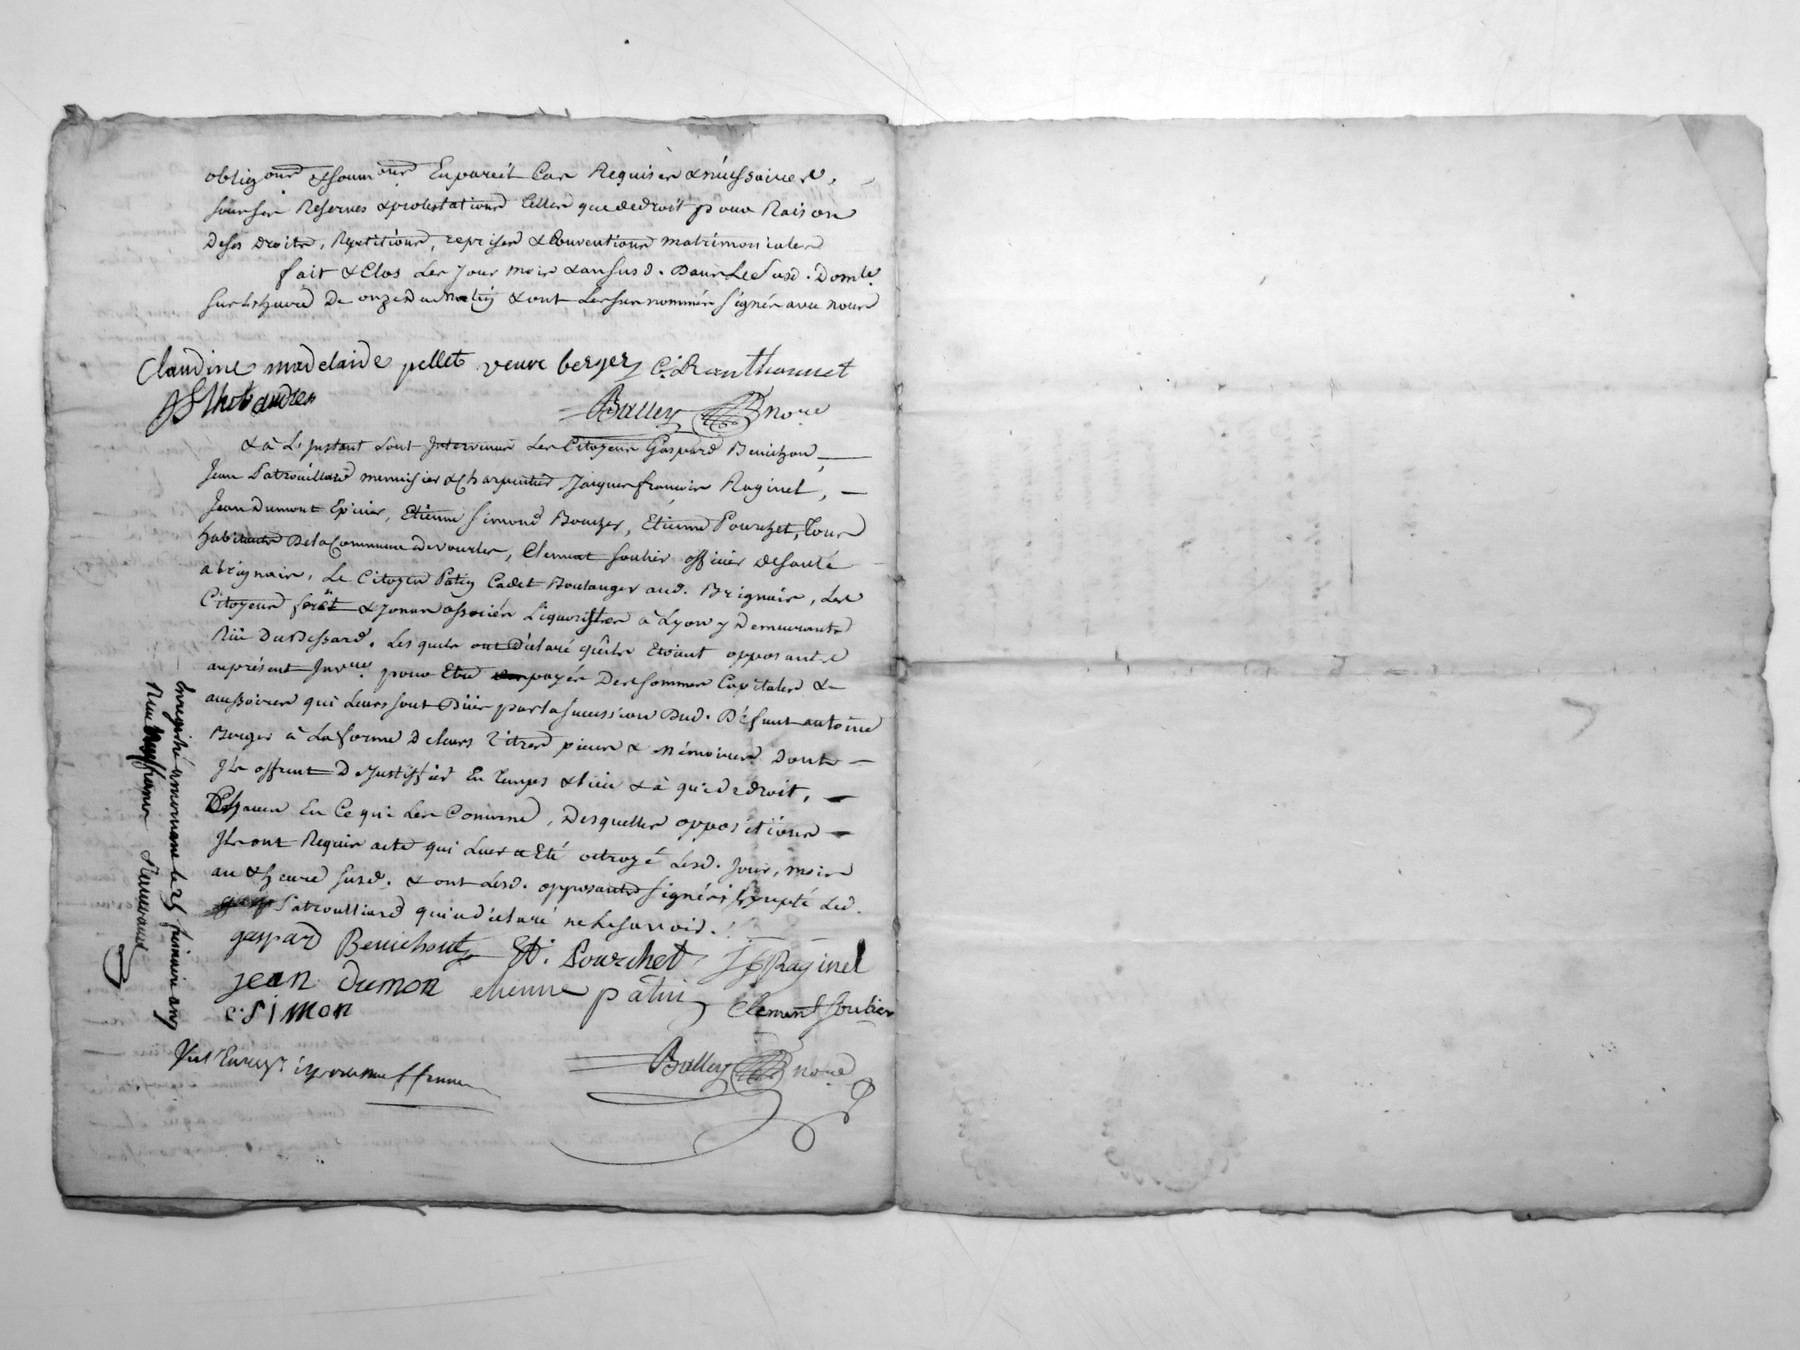 obligons & soumons En pareil Cas Requises & nécessaires,
sous ses Reserves & protestations telles que de droit pour Raison
De ses Droits, Repetitions, reprises & Conventions matrimoniales
fait & Clos Les Jour mois & an susd. Dans Le Susd. Domle.
sur Lheure De onze du matin & ont Les sus nommés signés avec nous
Claudine madelaide pellet veuve berger C. Ranthonnet
Balley nore
& à L'Instant sont Intervenus Les Citoyens Gaspard Benichon,
Jean Patrouillard menuisier & Charpentier, Jacques françois Raginel,
Jean Dumont Epicier, Etienne Simond Boucher, Etienne Pourchet, Tous
habitants De la Commune De vourles, Clement Soulier officier De santé
a brignais, Le Citoyen Patin Cadet Boulanger aud. Brignais, Les
Citoyens & associés Liquoristes à Lyon y Demeurants
Rüe Du Bessard, Lesquels ont Déclaré qu'ils Etoient opposants
au présent Invre. pour Etre payés Des sommes Capitales &
accessoires qui Leurs sont Düe par la sucession Dud. Défunt antoine
Berger à La forme De leurs titres pieces & Mémoires Dont
Ils offrent De Justiffier En temps & lieu & à qui de droit,
Chacun En Ce qui Les Concerne, Desquelles oppositions
Ils ont Requis acte qui Leur a Eté octroyé Lesd. Jour, mois
an & heure susd. & ont Lesd. opposants signés, Excepté Led.
Patrouilliard qui a déclaré ne Le savoir.
gaspard Benichont Et. Pourchet J f Raginel
jean dumon etienne pâtin Clement Soulier
e. Simon
Balley nore
Enregistré a mornant le 25 frimaire an